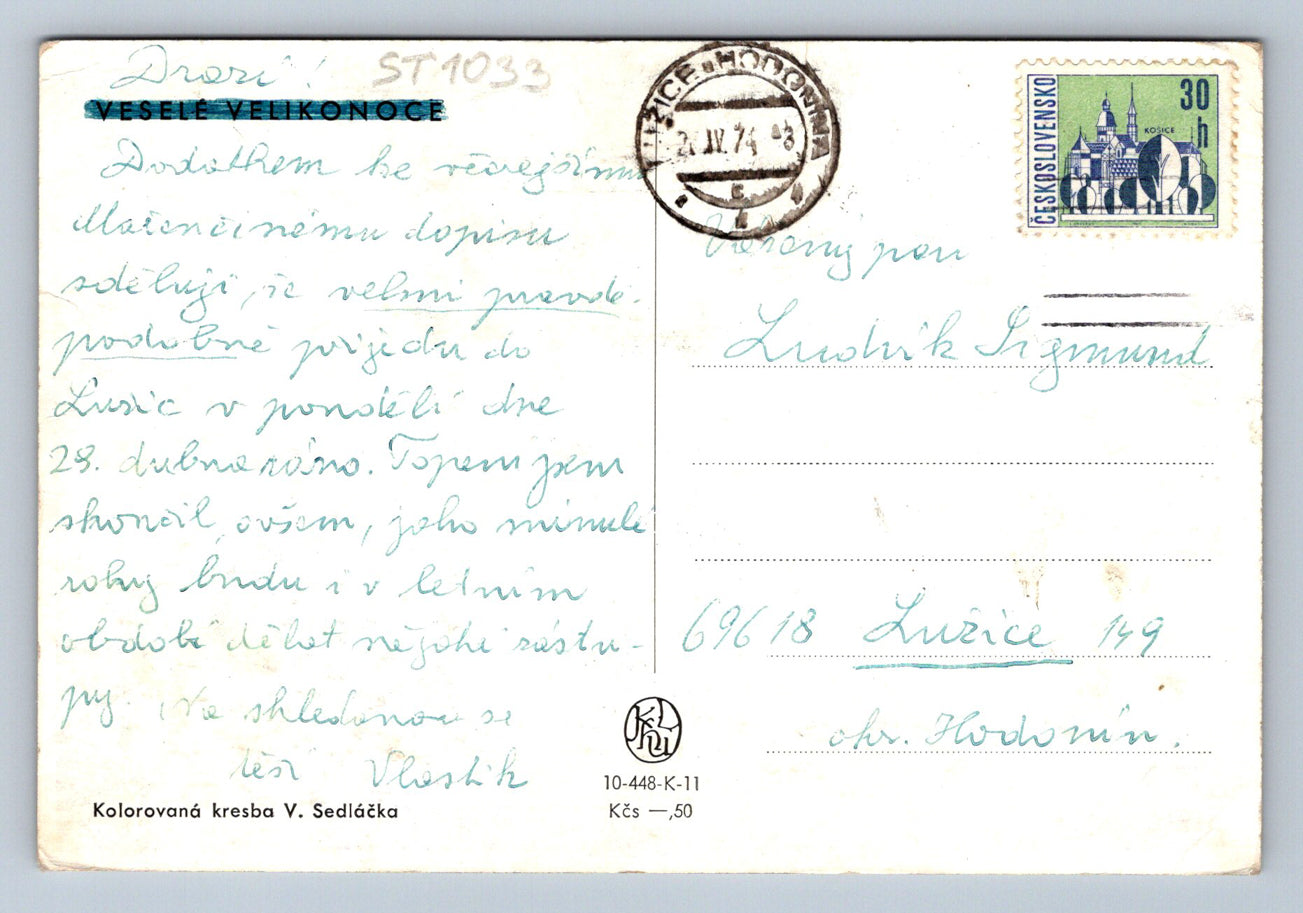 Drazí!
ST1033
VESELÉ VELIKONOCE
Dodatkem ke včerejšímu
Mařenčinému dopisu
sděluji, že velmi pravdě-
podobně přijedu do
Lužic v pondělí dne
29. dubna ráno. Topení jsem
skončil, ovšem, jako minulé
roky budu i v letním
období dělat nějaké zástu-
py. Na shledanou se
těší Vlastík
Kolorovaná kresba V. Sedláčka
10-448-K-11
Kčs —,50
LUŽICE u HODONÍNA
IV. 74
ČESKOSLOVENSKO
30 h
KOŠICE
Vážený pan
Ludvík Sigmund
69618 Lužice 149
okr. Hodonín.